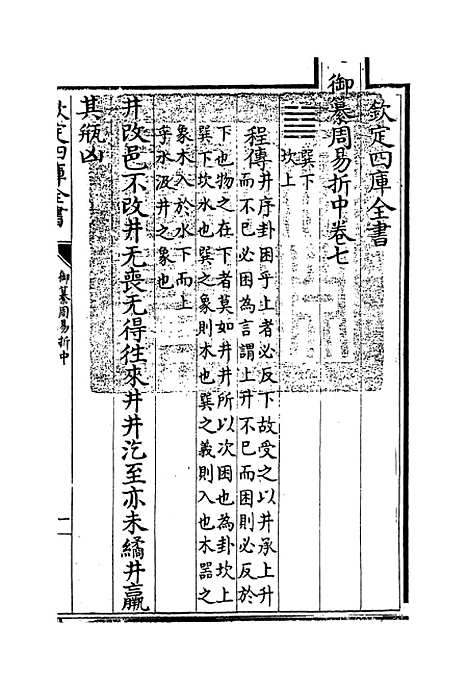 欽定四庫全書
御纂周易折中卷七
巽下
坎上
程傳井序卦困乎上者必反下故受之以井承上升
而不已必困為言謂上升不已而困則必反於
下也物之在下者莫如井井所以次困也為卦坎上
巽下坎水也巽之象則木也巽之義則入也木器之
象木入於水下而上
乎水汲井之象也
井改邑不改井无喪无得往來井井汔至亦未繘井羸
其瓶凶
欽定四庫全書
御纂周易折中
一